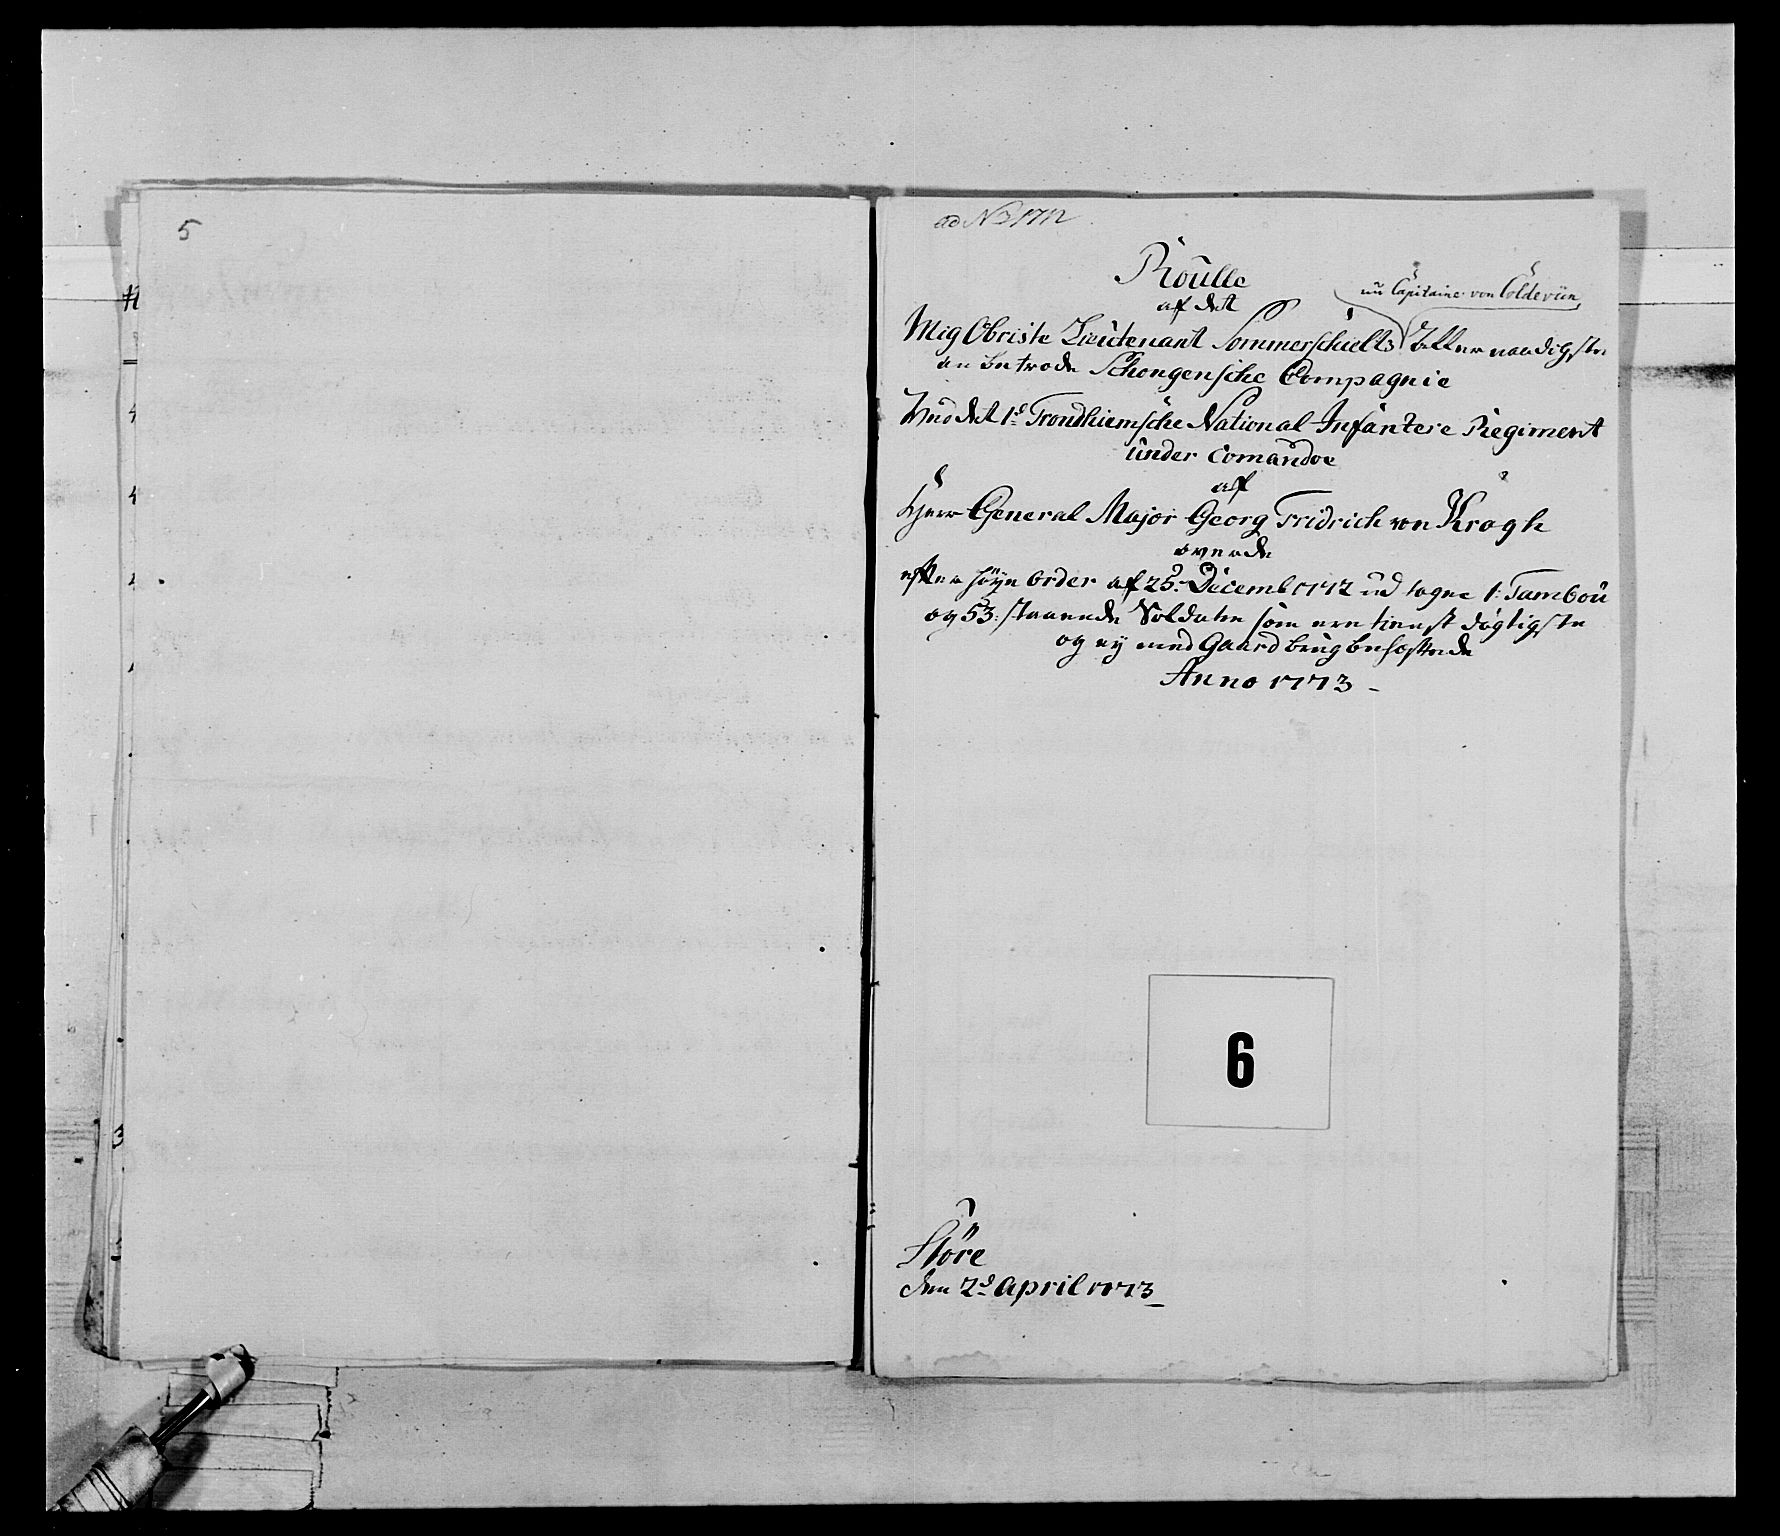 5
ad No 3 1772
Roulle
nu Capitaine von Coldevin
af det
Mig Obriste Lieutenant Sommerschields Allernaadigste
an betrode Schongensche Compagnie
Wed det 1ste Trondhiemsche National Infanterie Regiment
under Comandoe
aff
Herr General Major Georg Fridrich von Krogh
over de
efter höye Order af 25: Decembr 1772 ud tagne 1: Tambou
og 53: staaende Soldater som ere tienst dögtigste
og ey med Gaard brug behæftede
Anno 1773
6
Störe
den 2d April 1773